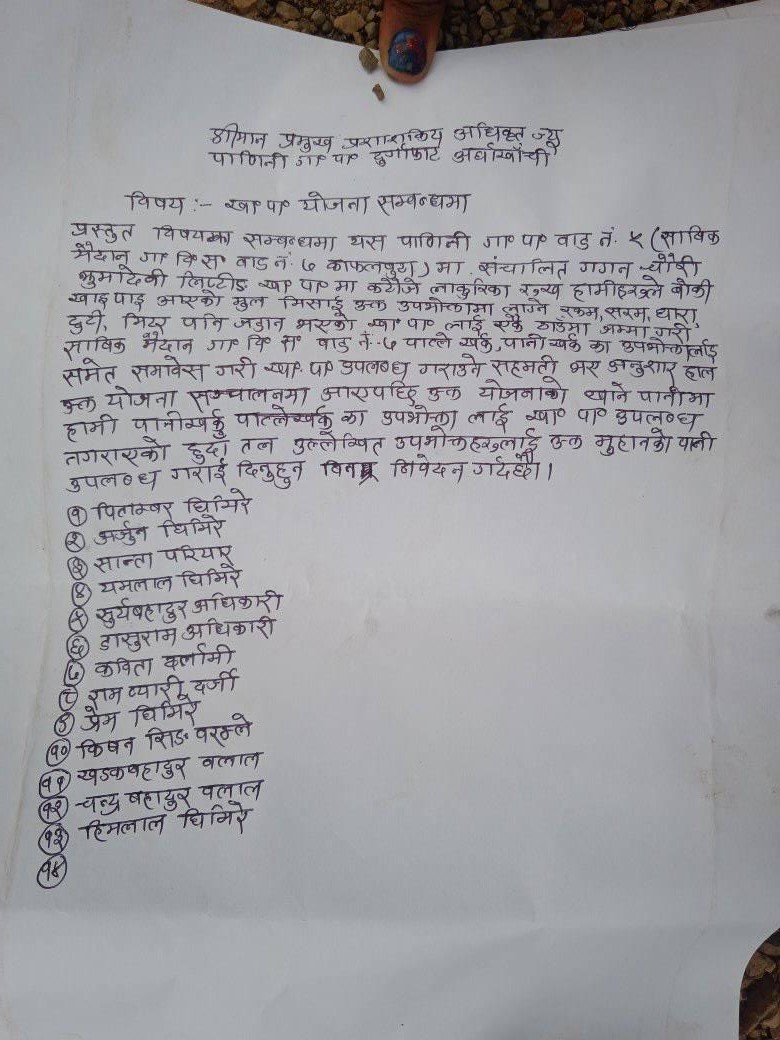 श्रीमान प्रमुख प्रशासकिय अधिकृत ज्यू
पाणिनी गा० पा० दुर्गाफाट अर्घाखाँची
विषय :- खा० पा० योजना सम्बन्धमा
प्रस्तुत विषयका सम्बन्धमा यस पाणिनी गा० पा० वाड नं. ५ (साविक
मैदान गा० वि० स० वाड नं. ७ काफलपुरा) मा संचालित गगन चौरी
कुमादेवी लिफ्टीङ खा० पा० मा कटौजे लाकुरिका रुख हामीहरुले बोकी
खाइ पाइ आएको मुल मिसाई उक्त उपभोक्तामा लाग्ने रकम, सरम, धारा,
टुटी, मिटर पनि जडान भएको खा० पा० लाई एकै ठाउँमा जम्मा गरी
साविक मैदान गा० वि० स० वाड नं. ७ पाल्ले खर्क, पानी खर्क का उपभोक्तालाई
समेत समावेस गरी खा० पा० उपलब्ध गराउने सहमती भए अनुसार हाल
उक्त योजना सञ्चालनमा आएपछि उक्त योजनाको खाने पानीमा
हामी पानीखर्क पाल्लेखर्क का उपभोक्ता लाई खा० पा० उपलब्ध
नगराएको हुदा तल उल्लेखित उपभोक्ताहरुलाई उक्त मुहानको पानी
उपलब्ध गराई दिनुहुन विनम्र निवेदन गर्दछौ।
१ पिताम्बर घिमिरे
२ अर्जुन घिमिरे
३ सान्ता परियार
४ यमलाल घिमिरे
५ सुर्यबहादुर अधिकारी
६ डासुराम अधिकारी
७ कविता दर्लामी
८ राम प्यारी दर्जी
९ प्रेम घिमिरे
१० किषन सिङ
११ खडकबहादुर वलाल
१२ चन्द्र बहादुर वलाल
१३ हिमलाल घिमिरे
१४